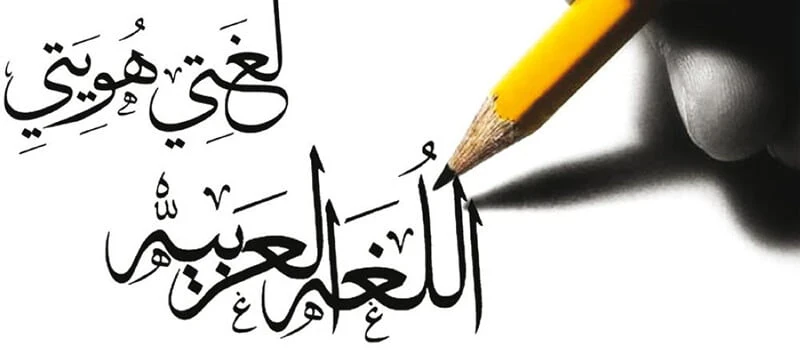 لُغَتِي هُوِيَتِي
اللُغه العربيه